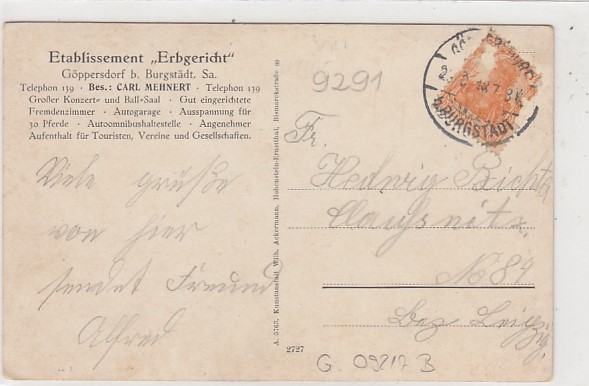 Etablissement „Erbgericht“
Göppersdorf b. Burgstädt, Sa.
Telephon 139 · Bes.: CARL MEHNERT · Telephon 139
Großer Konzert- und Ball-Saal · Gut eingerichtete
Fremdenzimmer · Autogarage · Ausspannung für
30 Pferde · Autoomnibushaltestelle · Angenehmer
Aufenthalt für Touristen, Vereine und Gesellschaften.
Viele grüße
von hier
sendet Freund
Alfred
A. 5763. Kunstanstalt Wilh. Ackermann, Hohenstein-Ernstthal, Bismarckstraße 99
2727
9291
BURGSTÄDT
Fr.
Hedwig
Claußnitz
No 84
Bez Leipzig
G 09217 B